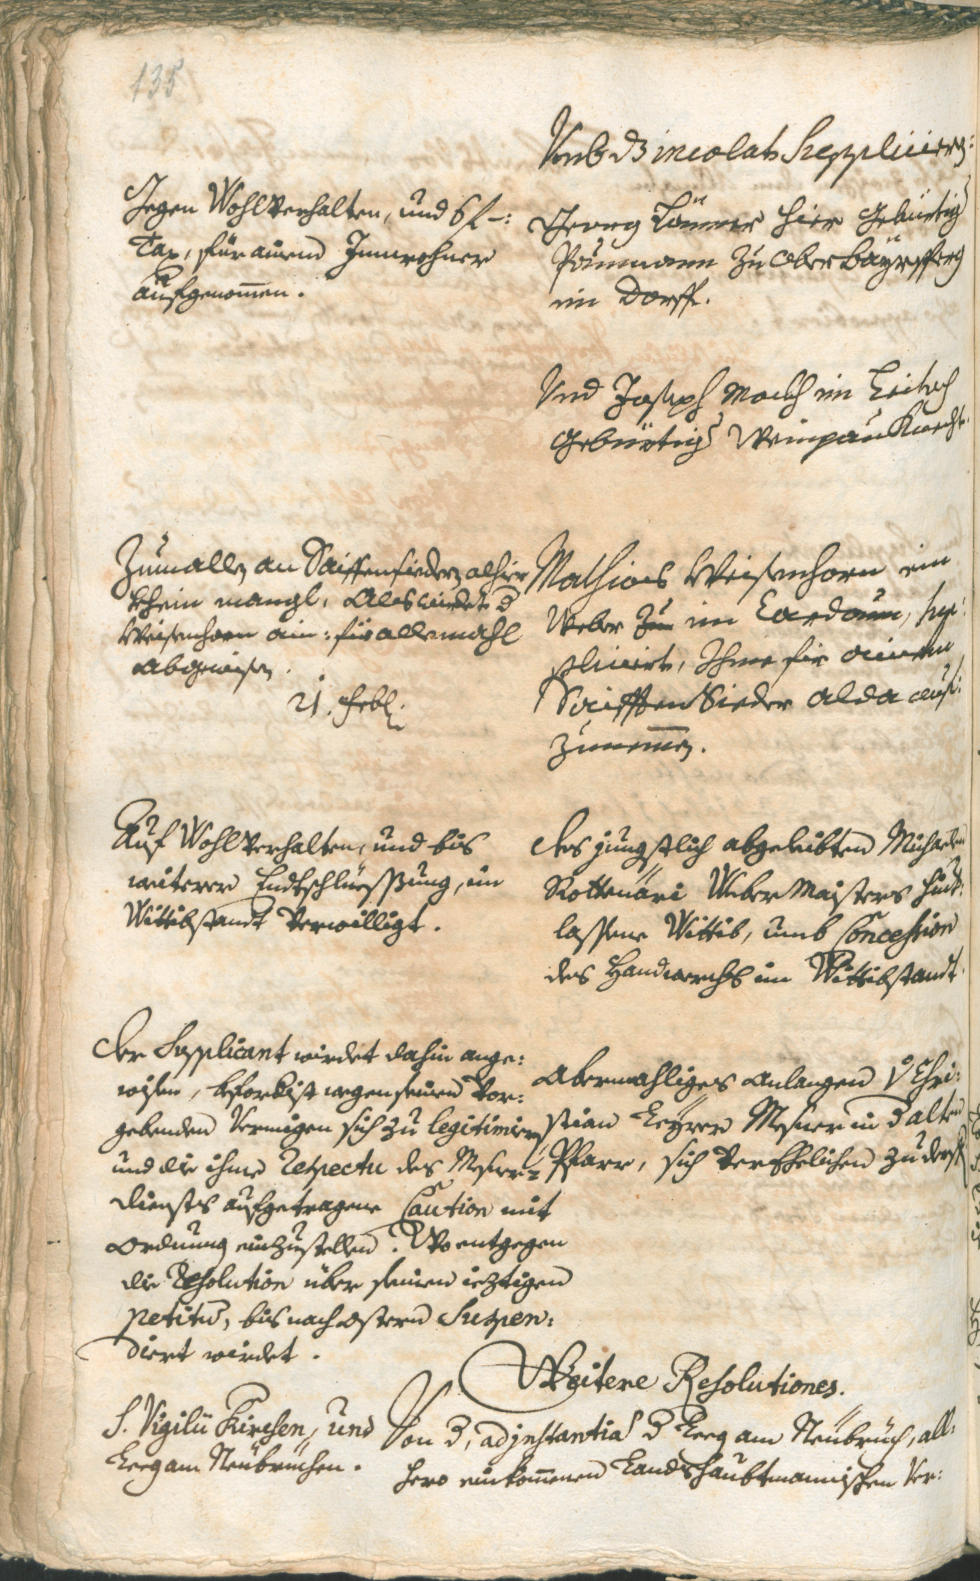 135
Umb dz incolat Suppliciern:
Gegen Wohlverhalten, und 6 f –:
Tax, für ainen Innwohner
aufgenommen.
Georg hier Gebürtig
Paumann zu Ober
im Dorff.
Und Joseph im
Gebürtig Weinpau Knecht.
Zumallen an Saiffensiedern alhier
khein mangl, Als wirdet d
Weisenhorn ain: für allemahl
Abgewisen.
21. Feb:
Mathias Weisenhorn ein
Weber im sup:
plicirt, Ihme für ainen
Saiffen Sieder alda auf:
zunemmen.
Auf Wohlverhalten, und bis
weiterer Endtschlüessung, im
Wittibstandt verwilligt.
Des jüngstlich abgeleibten Michaelen
Weber Maisters hint:
lassene Wittib, umb Concession
des Handwerchs im Wittibstandt.
Der Supplicant wirdet dahin ange:
wisen, wegen seinen vor:
gebenden Vermigen sich zu legitimiern
und die ihme Respectu des Mesner:
diensts aufgetragene Caution mit
Ordnung einzustellen. Wo entgegen
die Resolution über seinen ieztigen
petitu, bis nach Ostern Suspen:
diert wirdet.
Abermahliges Anlangen Chri:
stian Mesner in d alten
Pfarr, sich verehelichen zu derffen
Weitere Resolutiones.
S. Vigilii Kirchen, und
am Neübrüchen.
Von d, adjnstantia d am Neübruch, all:
hero einkommenen Landshaubtmannischen Ver: